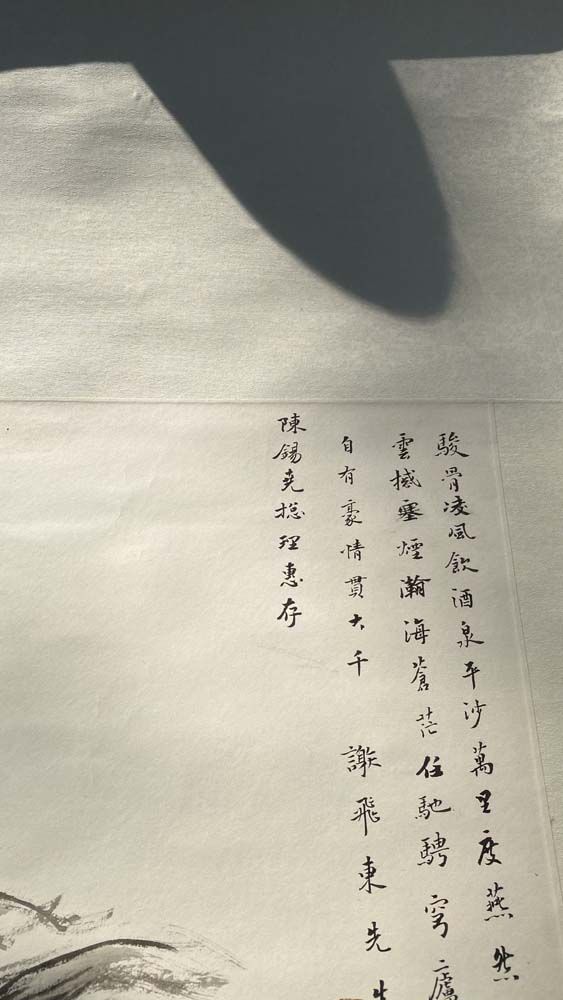 駿骨凌風飲酒泉平沙萬里度燕然
雲撼塞煙瀚海蒼茫任馳騁穹廬
自有豪情貫大千
謝飛東先生
陳錫堯總理惠存